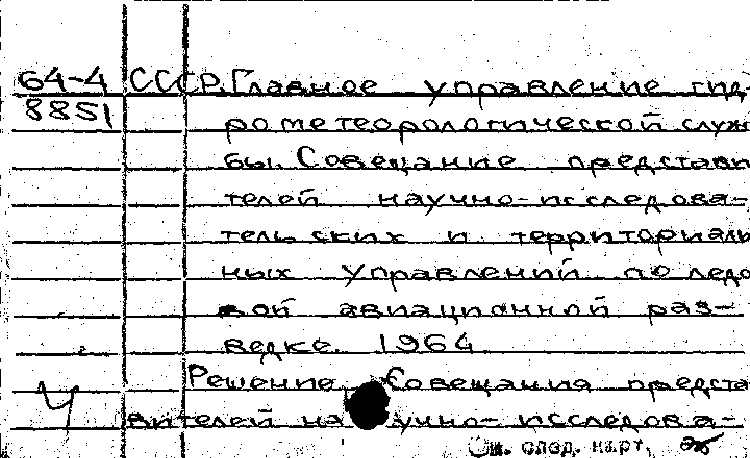 64-4 СССР. Главное управление гид-
8851 рометеорологической служ
бы. Совещание представи
телей научно-исследова-
тельских и территориаль
ных управлений по ледо
вой авиационной раз-
ведке. 1964
Решение Совещания предста
вителей научно-исследова-
См. след. карт.